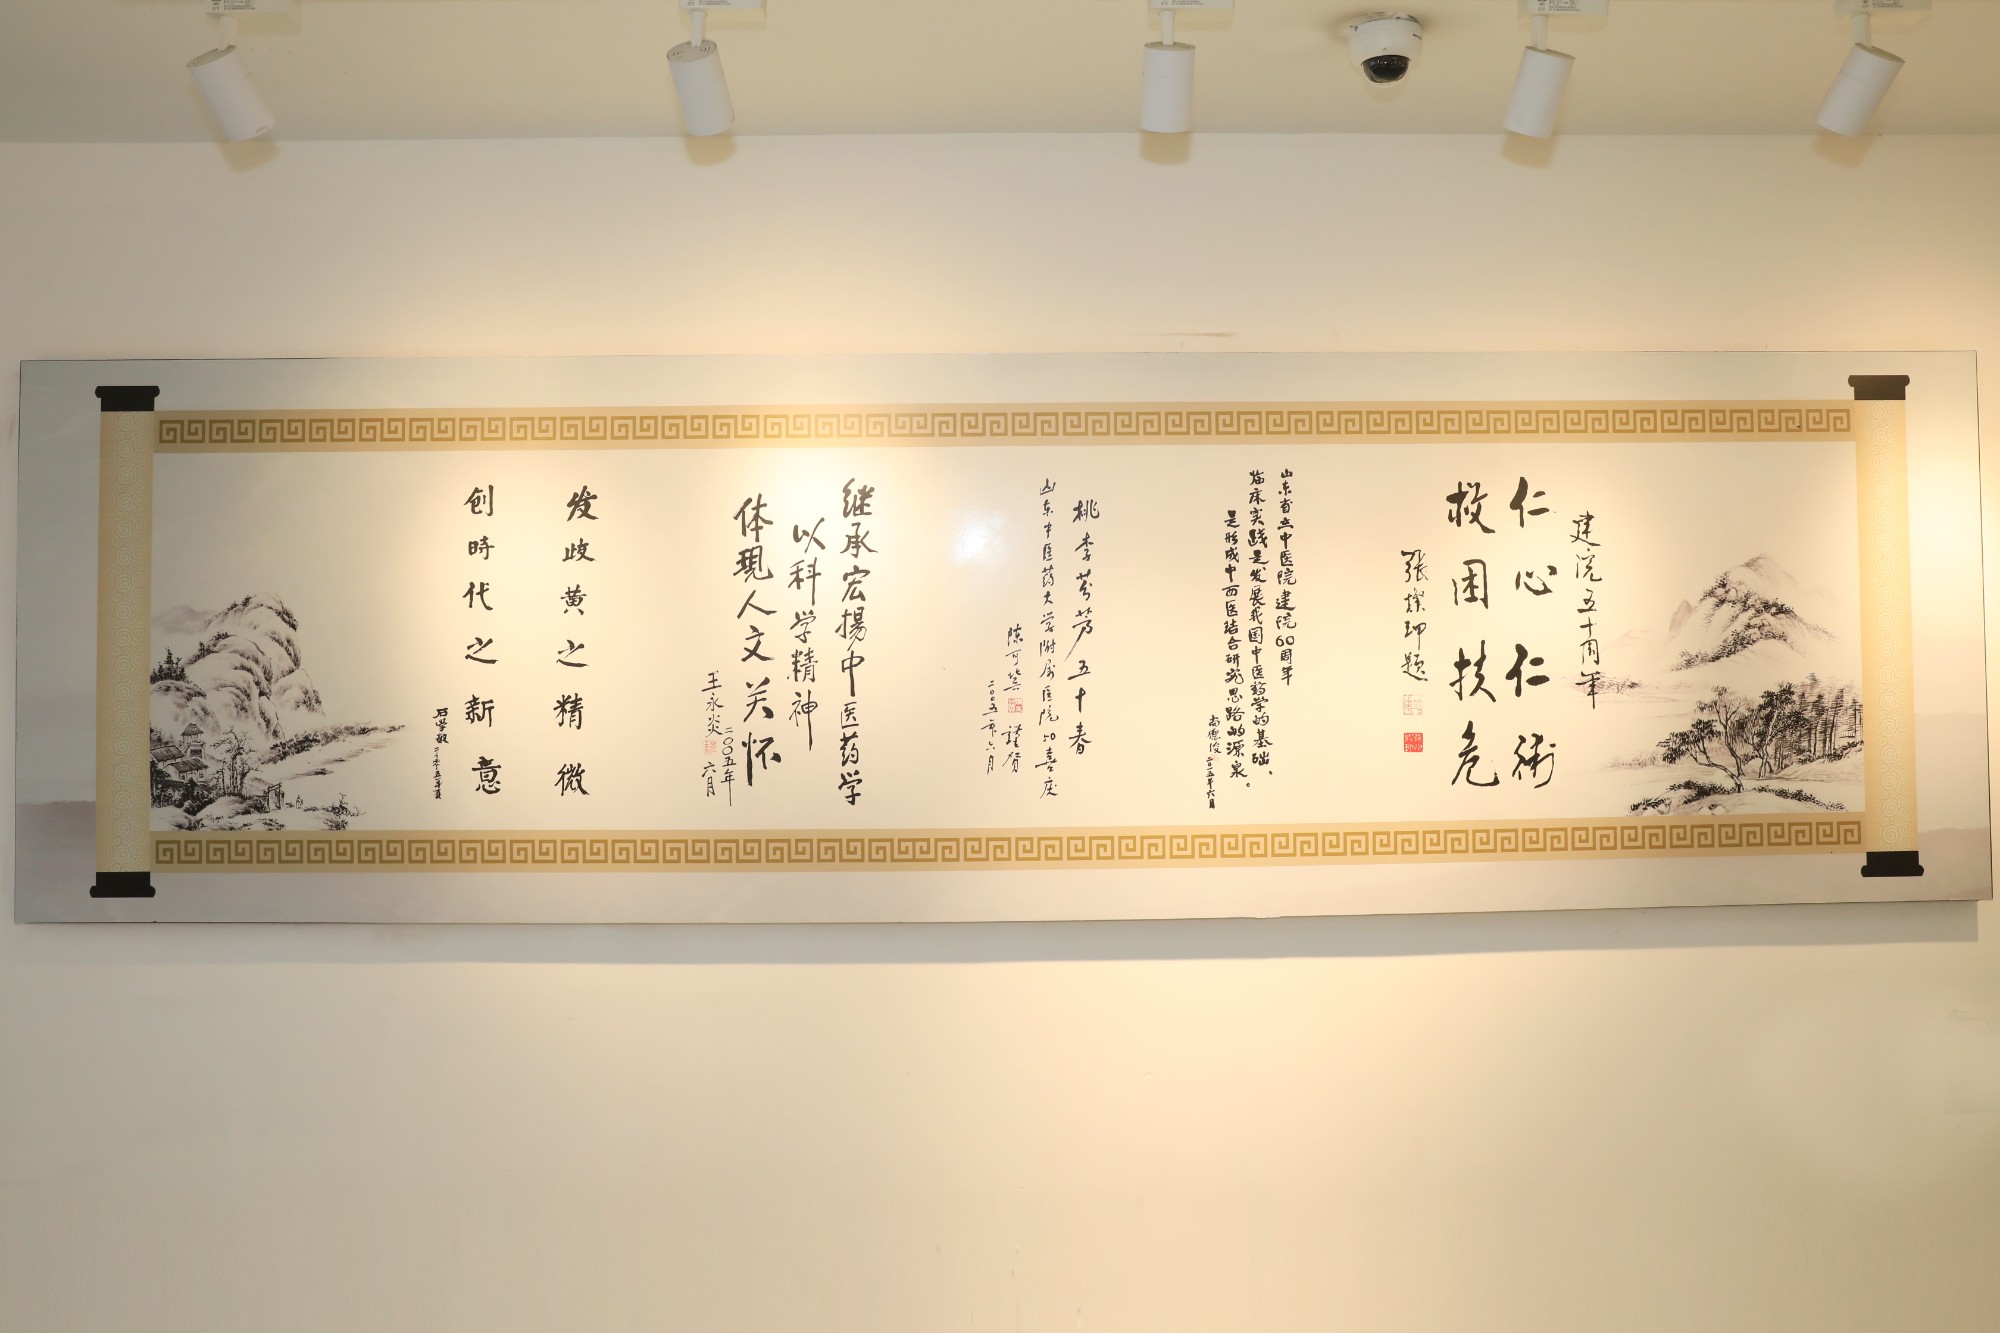 建院五十周年
仁心仁術
救困扶危
張燦玾题
山东省立中医院建院60周年
临床实践是发展我国中医药学的基础，
是形成中西医结合研究思路的源泉。
尚德俊 二〇一五年六月
桃李芬芳五十春
山东中医药大学附属医院50喜庆
陈可冀 谨贺
二〇〇五年六月
继承宏揚中医药学
以科学精神
体現人文关怀
王永炎 二〇〇五年六月
发歧黄之精微
创時代之新意
石学敏 二〇〇五年夏